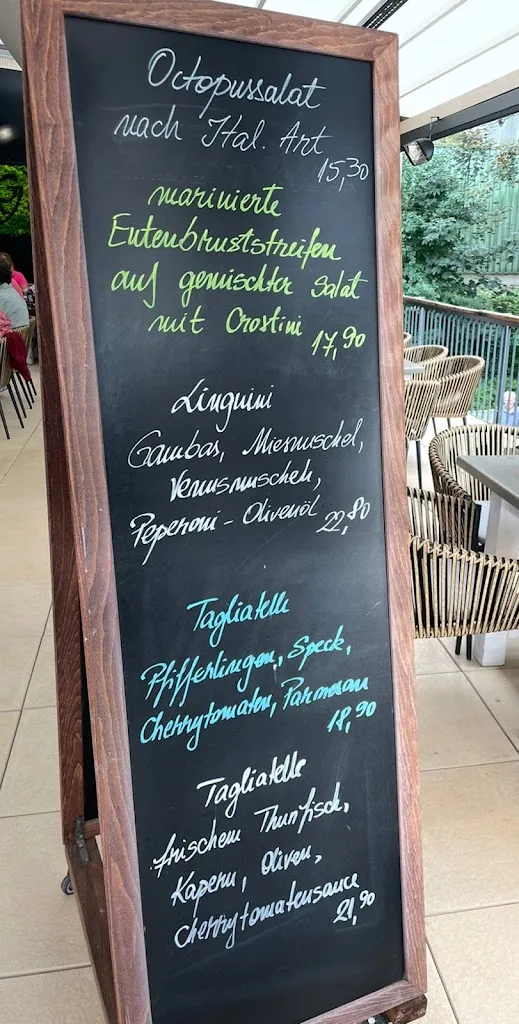 Octopussalat
nach Ital. Art
15,30
marinierte
Entenbruststreifen
auf gemischter Salat
mit Crostini
17,90
Linguini
Gambas, Miesmuschel,
Venusmuscheln,
Peperoni - Olivenöl
22,80
Tagliatelle
Pfifferlingen, Speck,
Cherrytomaten, Parmesan
18,90
Tagliatelle
frischem Thunfisch,
Kapern, Oliven,
Cherrytomatensauce
21,90